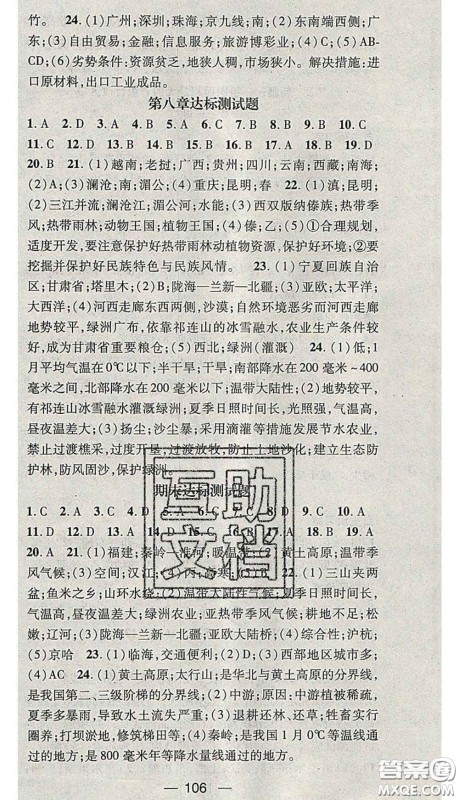 竹。 24. (1)广州;深圳;珠海;京九线;南;(2)东南部沿海;广
东;(3)自由贸易;金融;信息服务;旅游博彩业;(4)C;(5)AB-
CD;(6)劣势条件:资源贫乏,地狭人稠,市场狭小。解决措施:进
口原材料,出口工业成品。
第八章达标测试题
1. A 2. D 3. A 4. B 5. A 6. C 7. B 8. B 9. B 10. C
11. C 12. D 13. C 14. B 15. B 16. A 17. B 18. A 19. D
20. B 21. (1)越南;老挝;广西;贵州;四川;云南;西藏;南海;
(2)A;(3)澜沧江;南;湄公;(4)重庆;昆明;春 22. (1)滇;昆明;
(2)三江并流;澜沧江;湄公河;水能;(3)西双版纳傣族;热带季
风;热带雨林;动物王国;植物王国;(4)傣;乙;(5)①合理规划,
适度开发,要注意保护好热带雨林动植物资源,保护好环境;②要
挖掘并保护好民族特色与民族风情。 23. (1)宁夏回族自治
区;甘肃省;塔里木;(2)B;陇海—兰新—北疆;(3)亚欧;太平洋;
大西洋;(4)河西走廊东西两侧,沙漠;自然环境恶劣而河西走廊
地势较平,绿洲广布,依靠祁连山的冰雪融水,农业生产条件较
好,成为甘肃省重要的农业区;(5)西北;绿洲(灌溉) 24. (1)低;1
月平均气温在0℃以下;半干旱;干旱;南部降水在200毫米~400
毫米之间,北部降水在200毫米以下;温带大陆性;(2)地势较平,
有祁连山冰雪融水灌溉绿洲;夏季日照时间长,光照强,气温高,
昼夜温差大;(3)扬尘;沙尘暴;采用滴灌等措施发展节水农业,
禁止过渡樵采,过度开垦,过渡放牧,防止土地沙化;建立生态防
护林,防风固沙,保护绿洲。
期末达标测试题
1. C 2. B 3. C 4. D 5. A 6. C 7. D 8. C 9. D 10. A
11. D 12. D 13. A 14. B 15. A 16. A 17. B 18. A 19. A
20. A 21. (1)福建;秦岭—淮河;暖温带;(2)黄土高原;温带季
风气候;(3)空间;汉江;(4)丙;高寒;(5)B 22. (1)三山夹两
盆;鱼米之乡;山环水绕;(2)温带大陆性气候;夏季日照时间长,
气温高,昼夜温差大;绿洲农业;亚热带季风气候;耕地不足;松
嫩,辽河;(3)陇海—兰新—北疆;亚欧大陆桥;(4)综合性;沪杭;
(5)京哈 23. (1)临海,交通便利;(2)D;(3)西部地区城市多;
(4)AC 24. (1)黄土高原;太行山;是华北与黄土高原的分界线,
是我国第二、三级阶梯的分界线;(2)中游;原因:中游植被稀疏,
夏季多暴雨,导致水土流失严重;(3)退耕还林、还草、牲畜实行
圈养;打坝淤地、修筑梯田等;(4)秦岭;是我国1月0℃等温线通
过的地方;是800毫米年等降水量线通过的地方。
106
互助
文档
答案圈
MXQE.COM